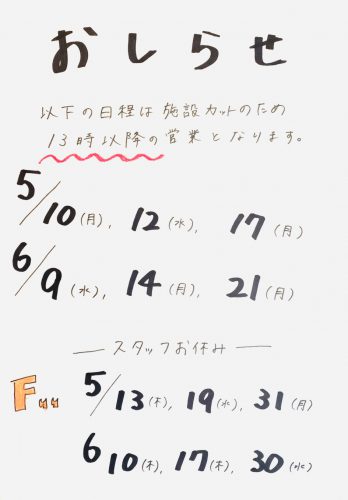 おしらせ
以下の日程は施設カットのため
13時以降の営業となります。
5/10(月), 12(水), 17(月)
6/9(水), 14(月), 21(月)
スタッフお休み
F 5/13(木), 19(水), 31(月)
6 10(木), 17(木), 30(水)